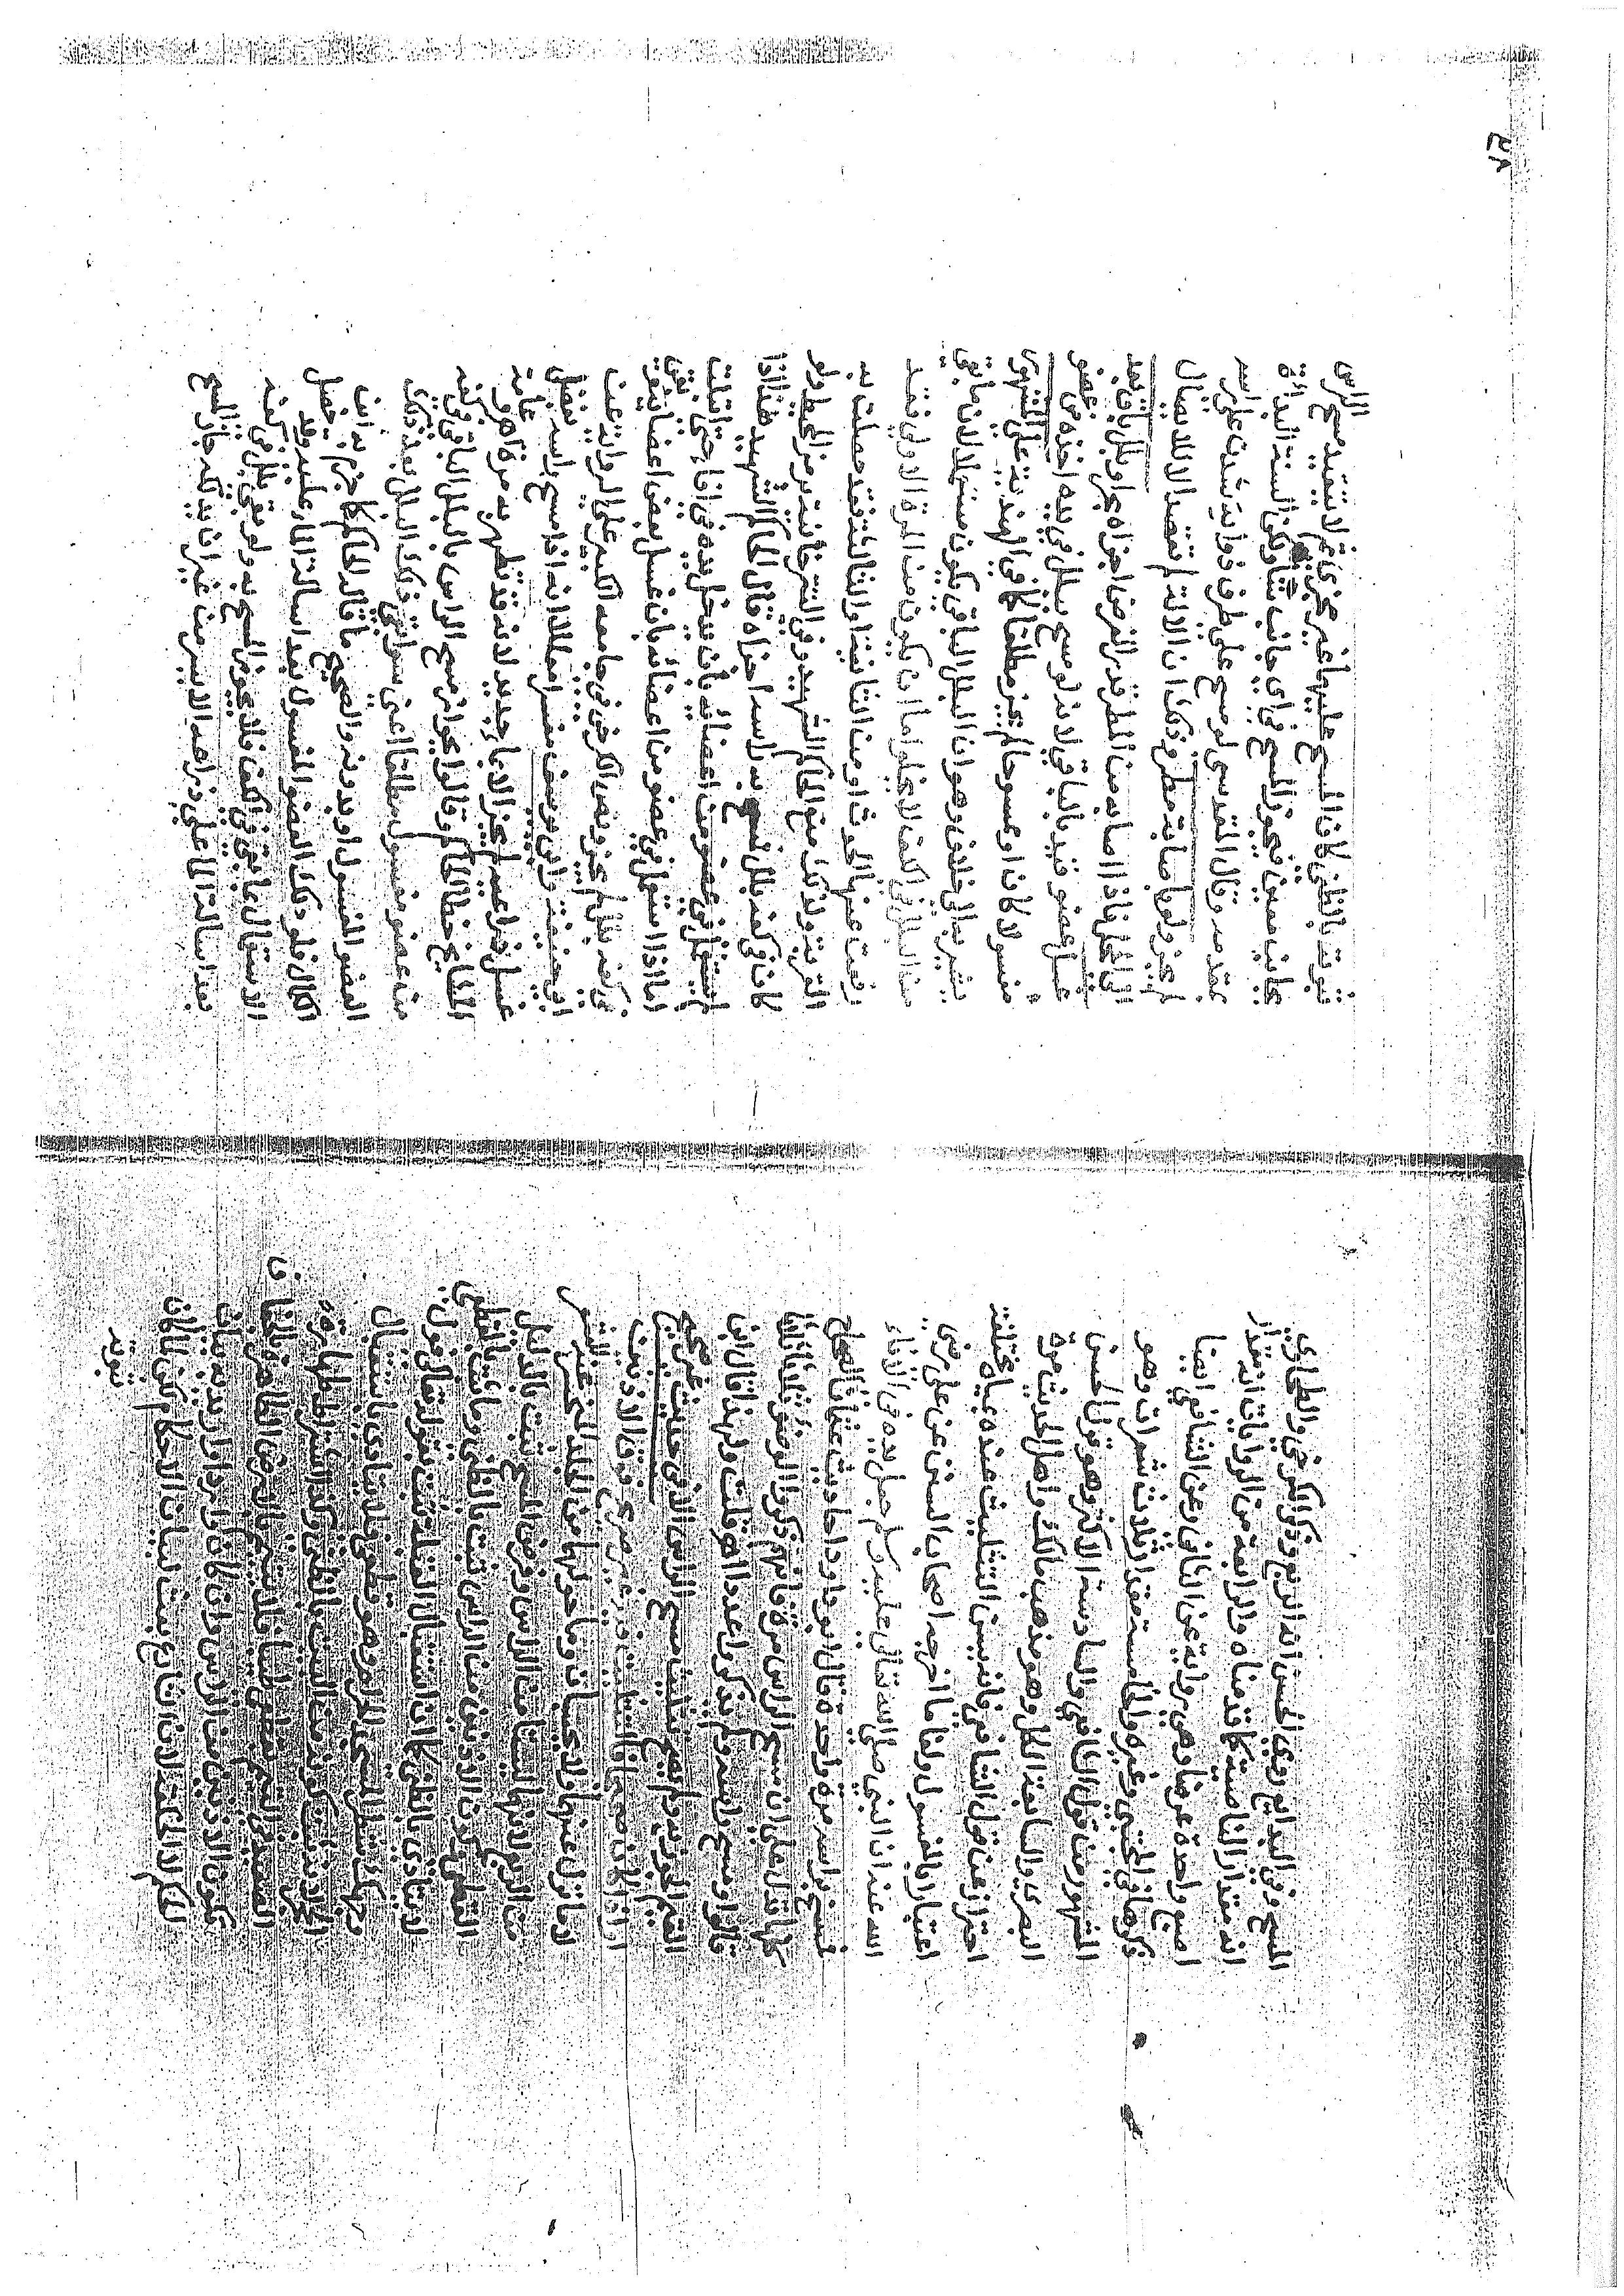 المسح وفي البدايع روى الحسن انه الربع وذكر الكرخي والطحاوي
انه مقدار الناصية كما قدمناه والرابعة من الروايات انه مقدار
اصبع واحدة عرضا وهي رواية عن الثاني وعن الشافعي ايضا
ذكرها في المجتبى وغيره والخامسة مقدار ثلاث شعرات وهو
المشهور من قول الشافعي والسادسة الاكثر وهو قول الحسن
البصري والسابعة الكل وهو مذهب مالك واهل الحديث مرة
احتراز عن قول الشافعي فانه يسن التثليث عنده بمياه مختلفة
اعتبارا بالمغسول ولنا ما اخرجه اصحاب السنن عن علي رضي
الله عنه ان النبي صلى الله تعالى عليه وسلم جعل يده في الاناء
فمسح براسه مرة واحدة قال ابو داود احاديث عثمان الصحاح
كلها تدل على ان مسح الراس مرة فانهم ذكروا الوضوء ثلاثا ثلاثا
قالوا ومسح براسه ولم يذكروا عددا اهـ قلت ولهذا قال ابن
القيم الجوزية ولم يصح تثليث مسح الراس الا في حديث غير صحيح
واذا كان صحيحا فالتثليث فيه غير صريح فوق الاذنين
لا ما نزل عنها ولا يحسبان وما حولهما من الجلد المنحسر عنه الشعر
من الربع لانهما ليستا من الراس وفرض المسح ثبت بالدليل
القطعي وكون الاذنين من الراس ثبت بالظني وما ثبت بالقطعي
لا يتادى بالظني كما ان استقبال القبلة ثبت بقوله تعالى فول
وجهك شطر المسجد الحرام وهو قطعي فلا يتادى باستقبال
الحجر لانه ثبت كونه من البيت بالظني وكذا اشتراط طهارة
الصعيد في التيمم قطعي طيبا فلا يتادى بالارض
فكون الاذنين من الراس وان كان واردا به بيان
الحكم لا الخلقة لان الشارع بعث لبيان الاحكام لكن لما كان
ثبوته
ثبوته بالظن كان المسح عليهما غير مجزئ ثم لا يتقيد مسح الراس
بجانب معين فيجوز المسح في اي جانب شاء ولكن السنة البداءة
بمقدمه وقال المقدسي لو مسح على طرف ذوابة شدت على راسه
لم يجز ولو باصابة مطر وذلك ان الالة لم تقصد الا للايصال
الى المحل فاذا اصابه من المطر قدر الفرض اجزاه او بلل باق بعد
غسل عضو قيد بالباقي لانه لو مسح ببلل في يده اخذه من عضو
مغسولا كان او ممسوحا لم يجز مطلقا كما في الهندية على المشهور
يشير به الى خلاف وهو ان البلل الباقي يكون مستعملا لان ما بقي
من البلل في الكف لا يخلو اما ان يكون من المرة الاولى فقد
ارتفعت عنها الحدث او من الثانية او الثالثة فقد حصلت به
القربة ولذلك منع الحاكم الشهيد وفي التترخانية برمز المحيط ولو
كان في كفه بلل فمسح به راسه اجزاه قال الحاكم الشهيد هذا اذا
لم يستعمل في عضو من اعضائه بان يدخل يده في اناء حتى ابتلت
اما اذا استعمل في عضو من اعضائه بان غسل بعض اعضائه وبقي
في كفه بلل لم يجز ونص الكرخي في جامعه الكبير على الرواية عن
ابي حنيفة وابي يوسف مفسرا معللا انه اذا مسح راسه بفضل
غسل ذراعيه لم يجز الا بماء جديد لانه قد تطهر به مرة اهـ وعامة
المشايخ خطاء الحاكم وقالوا يجوز مسح الراس بالبلل الباقي في كفه
من عضو مغسول مطلقا اعني سواء بقي في كفه البلل بعد
العضو المغسول او بدونه والصحيح ما قاله الحاكم كما جزم به ابن
الكمال فلو دلك العضو المغسول بعد اسالة الماء عليه وقد حصل
الاستعمال بما بقي في الكف فلا يجوز المسح به ولو بقي بلل في كفه
بعد اسالة الماء على ذراعه الايسر من غير ان يدلكه جاز المسح